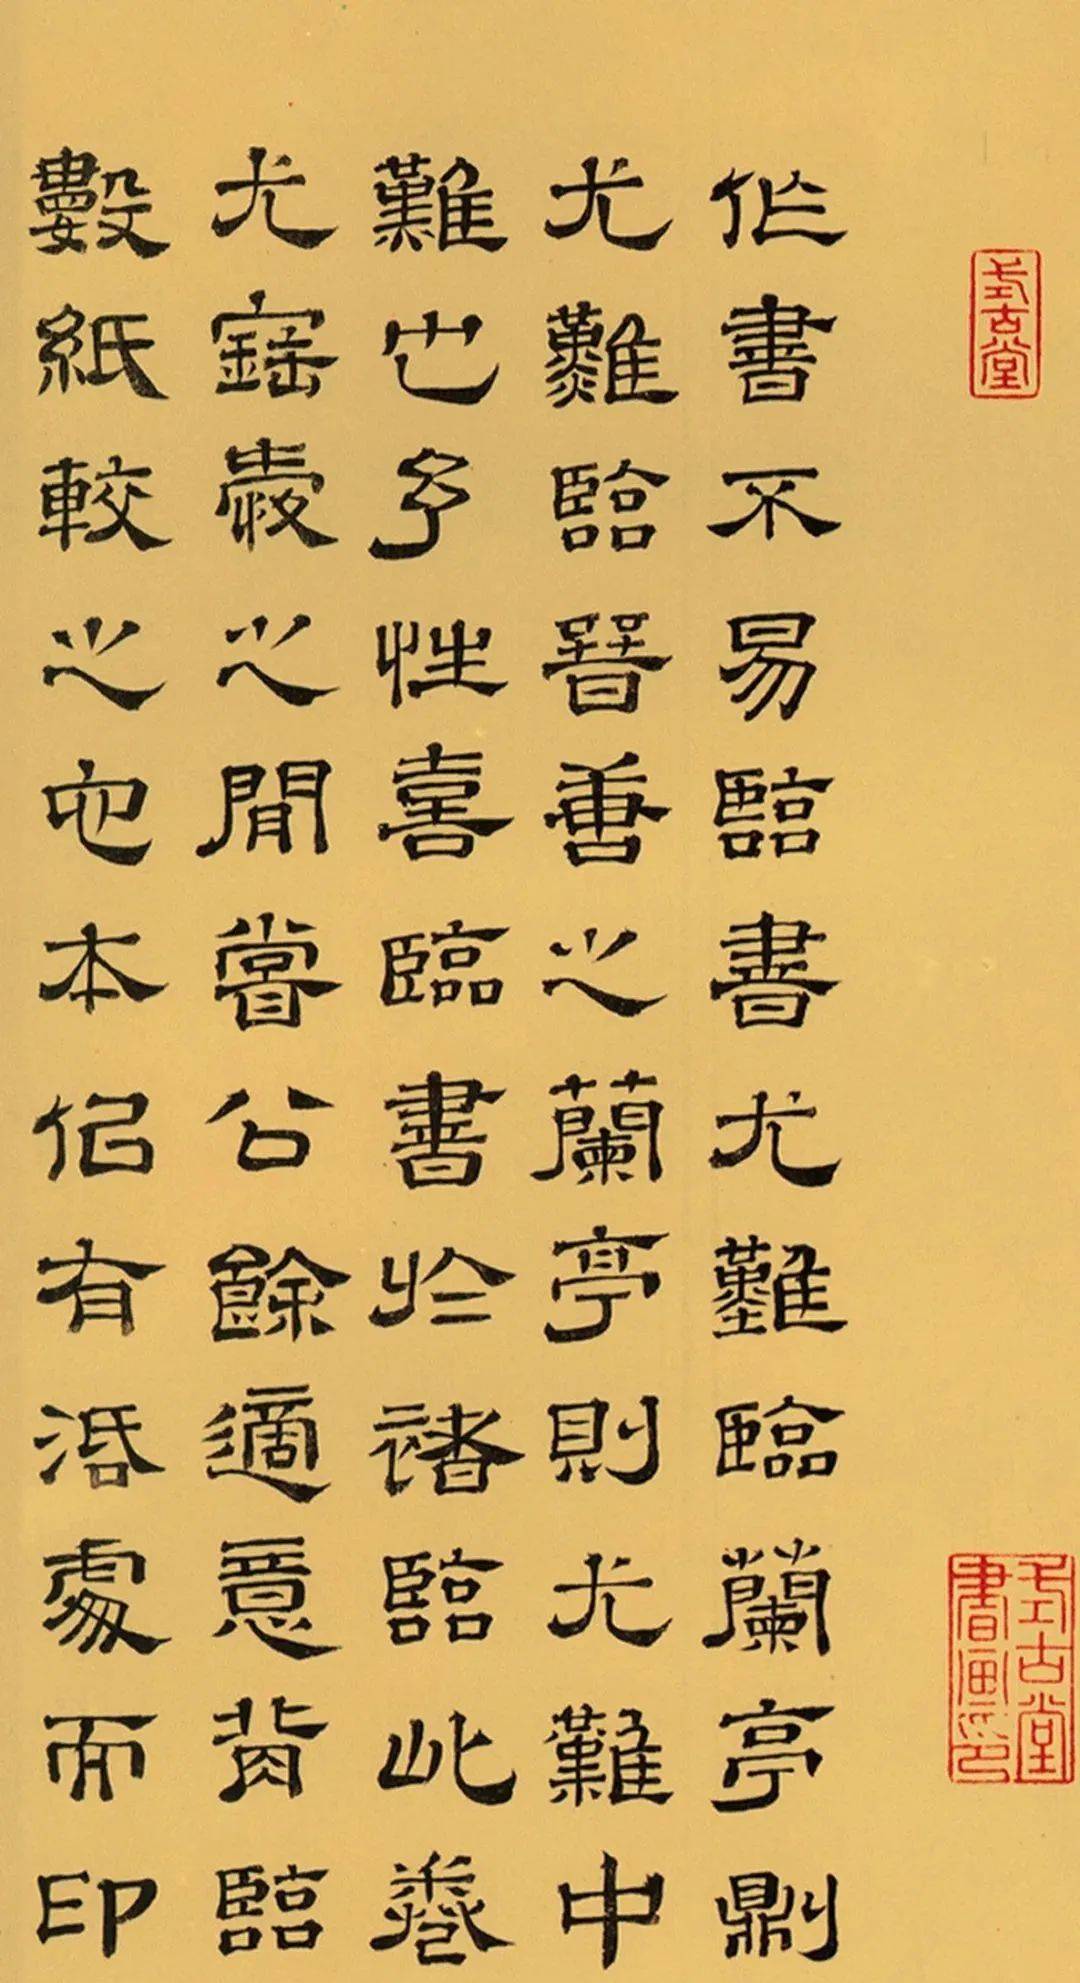 式古堂
式古堂書畫印
作書不易臨書尤難臨蘭亭則
尤難臨晉善之蘭亭則尤難中
難也予性喜臨書於褚臨此卷
尤寶愛之閒嘗公餘適意背臨
數紙較之它本佀有活處而印